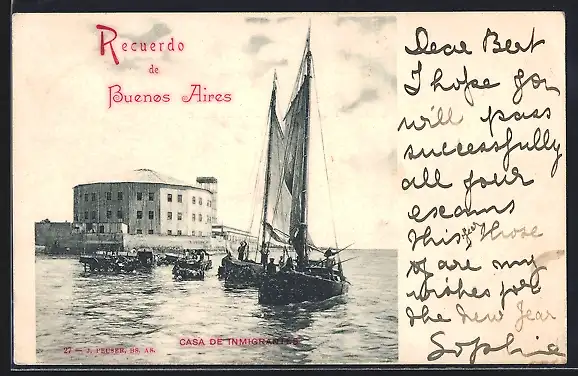 Recuerdo
de
Buenos Aires
CASA DE INMIGRANTES
27 — J. PEUSER, BS. AS.
Dear Bert
I hope you
will pass
successfully
all your
exams
this year Those
of are my
wishes for
the New Year
Sophie